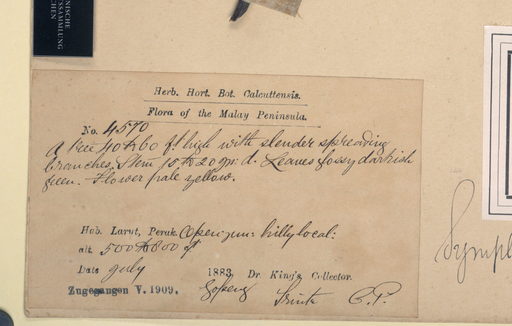 NISCHE
SSAMMLUNG
CHEN
Herb. Hort. Bot. Calcuttensis.
Flora of the Malay Peninsula.
No. 4570
A tree 40 to 60 ft high with slender spreading
branches, Stem 15 to 20 d. Leaves glossy darkish
green. Flower pale yellow.
Hab. Larut, Perak. Open hilly local:
alt. 500 to 800 ft
Date July 1883, Dr. King's Collector.
Zugegangen V. 1909.
Gopeng
C. P.
Sympl